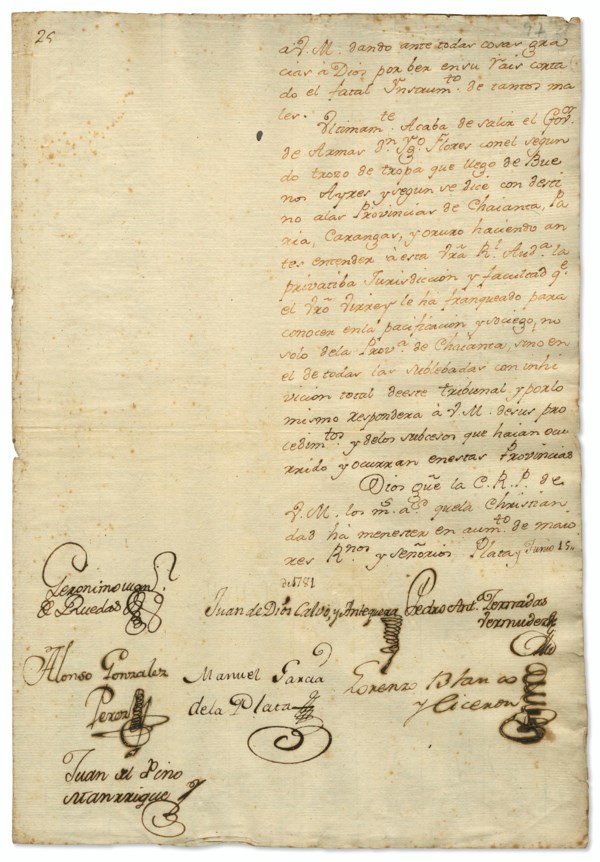 25
a V. M. dando ante todas cosas gra
cias â Dios por ber en su Rais corta
do el fatal Ynstrum.to de tantos ma
les.
Vltimam.te Acaba de salir el Gov.or
de Armas d.n Yg.o Flores con el segun
do trozo de tropa que llego de Bue
nos Ayres y segun se dice con desti
no a las Provincias de Chaianta, Pa
ria, Carangas, y oruro haciendo an
tes entender â esta vrâ R.l Aud.a la
privatiba Jurisdicción y facultad q.e
el vrô Virrey le ha franqueado para
conocer en la pacificación y sociego, no
solo de la Prov.a de Chaianta, sino en
el de todas las sublebadas con inhi
vición total de este tribunal y por lo
mismo respondera â V. M. de sus pro
cedim.tos y de los subcesos que haian ocu
rrido y ocurran en estas Provincias
Dios gûe la C. R. P. de
V. M. los m.s a.s que la Christian
dad ha menester en aum.to de maio
res R.nos y señorios Plata y Junio 15
de 1781
Geronimo
de Ruedas
Juan de Dios Calvo, y Antequera
Pedro Ant.o Zernadas
Vermudez
Alonso Gonzalez
Perez
Manuel Garcia
de la Plata
Lorenzo Blanco
y Ciceron
Juan del Pino
Manrrique